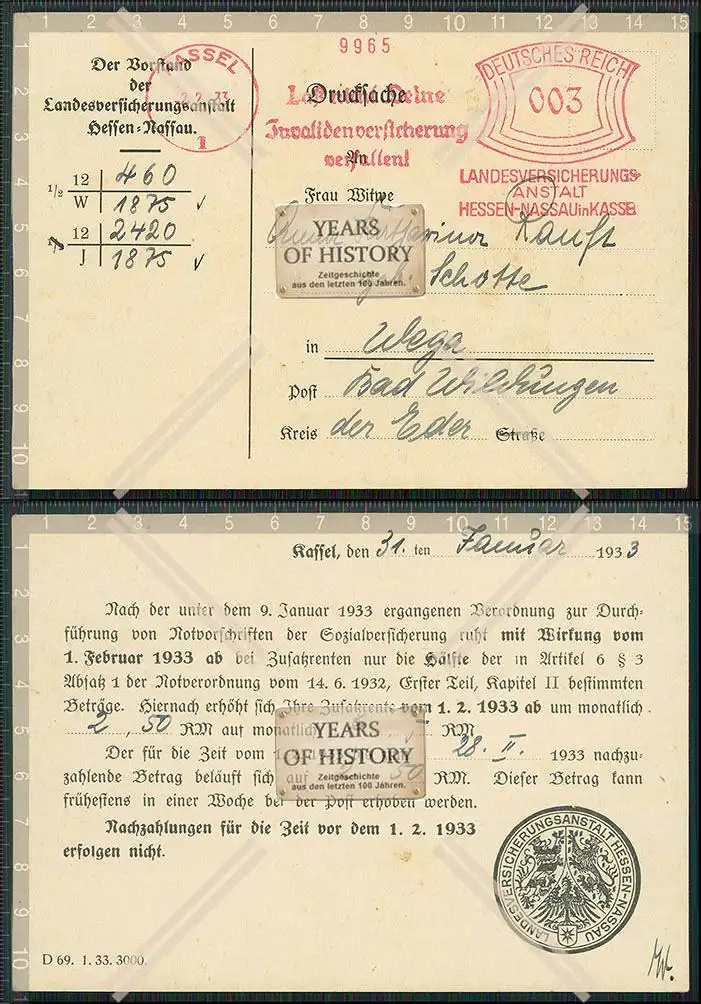 9965
Der Vorstand
der
Landesversicherungsanstalt
Hessen-Nassau.
KASSEL
2.2.33
1
Laß nicht Deine
Invalidenversicherung
verfallen!
DEUTSCHES REICH
003
LANDESVERSICHERUNGS-
ANSTALT
HESSEN-NASSAU in KASSEL
Drucksache
An
Frau Witwe
Ranft
geb. Schotte
in Wega
Post Bad Wildungen
Kreis der Eder Straße
1/2 12 460
W 1875
12 2420
J 1875
YEARS
OF HISTORY
Zeitgeschichte
aus den letzten 100 Jahren.
Kassel, den 31. ten Januar 1933
Nach der unter dem 9. Januar 1933 ergangenen Verordnung zur Durch-
führung von Notvorschriften der Sozialversicherung ruht mit Wirkung vom
1. Februar 1933 ab bei Zusatzrenten nur die Hälfte der in Artikel 6 § 3
Absatz 1 der Notverordnung vom 14. 6. 1932, Erster Teil, Kapitel II bestimmten
Beträge. Hiernach erhöht sich Ihre Zusatzrente vom 1. 2. 1933 ab um monatlich
2, 50 RM auf monatlich RM
Der für die Zeit vom 28. II. 1933 nachzu-
zahlende Betrag beläuft sich auf 50 RM. Dieser Betrag kann
frühestens in einer Woche bei der Post erhoben werden.
Nachzahlungen für die Zeit vor dem 1. 2. 1933
erfolgen nicht.
YEARS
OF HISTORY
Zeitgeschichte
aus den letzten 100 Jahren.
LANDESVERSICHERUNGSANSTALT HESSEN-NASSAU
D 69. 1. 33. 3000.